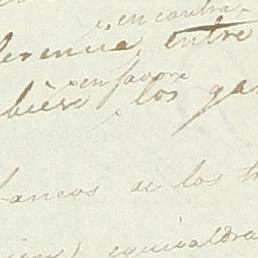 en contra
ferencia, entre
en favor
los ga
bancos de los t
equivaldra